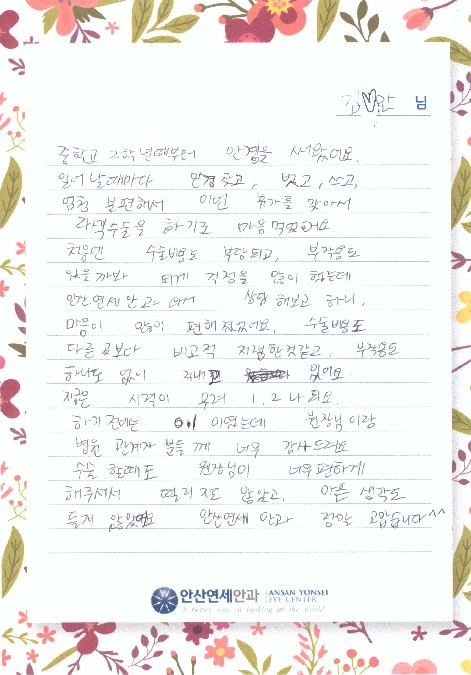 김♥완 님
중학교 2학년때부터 안경을 써왔어요.
일어날때마다 안경찾고, 벗고, 쓰고,
엄청 불편해서 이번 휴가를 맞아서
라섹수술을 하기로 마음먹었어요
처음엔 수술비용도 부담되고, 부작용도
있을까봐 되게 걱정을 많이 했는데
안산연세안과 와서 상담 해보고 하니,
마음이 많이 편해졌었어요. 수술비용도
다른 곳보다 비교적 저렴한것같고, 부작용도
하나도 없이 지내고 있어요
지금은 시력이 무려 1.2나 되요.
하기전에는 0.1 이였는데 원장님이랑
병원 관계자 분들께 너무 감사드려요
수술 할때도 원장님이 너무편하게
해주셔서 떨리지도 않았고, 아픈 생각도
들지 않았어요 안산연세 안과 정말 고맙습니다^^
안산연세안과 ANSAN YONSEI
EYE CENTER
A better way of looking at the world